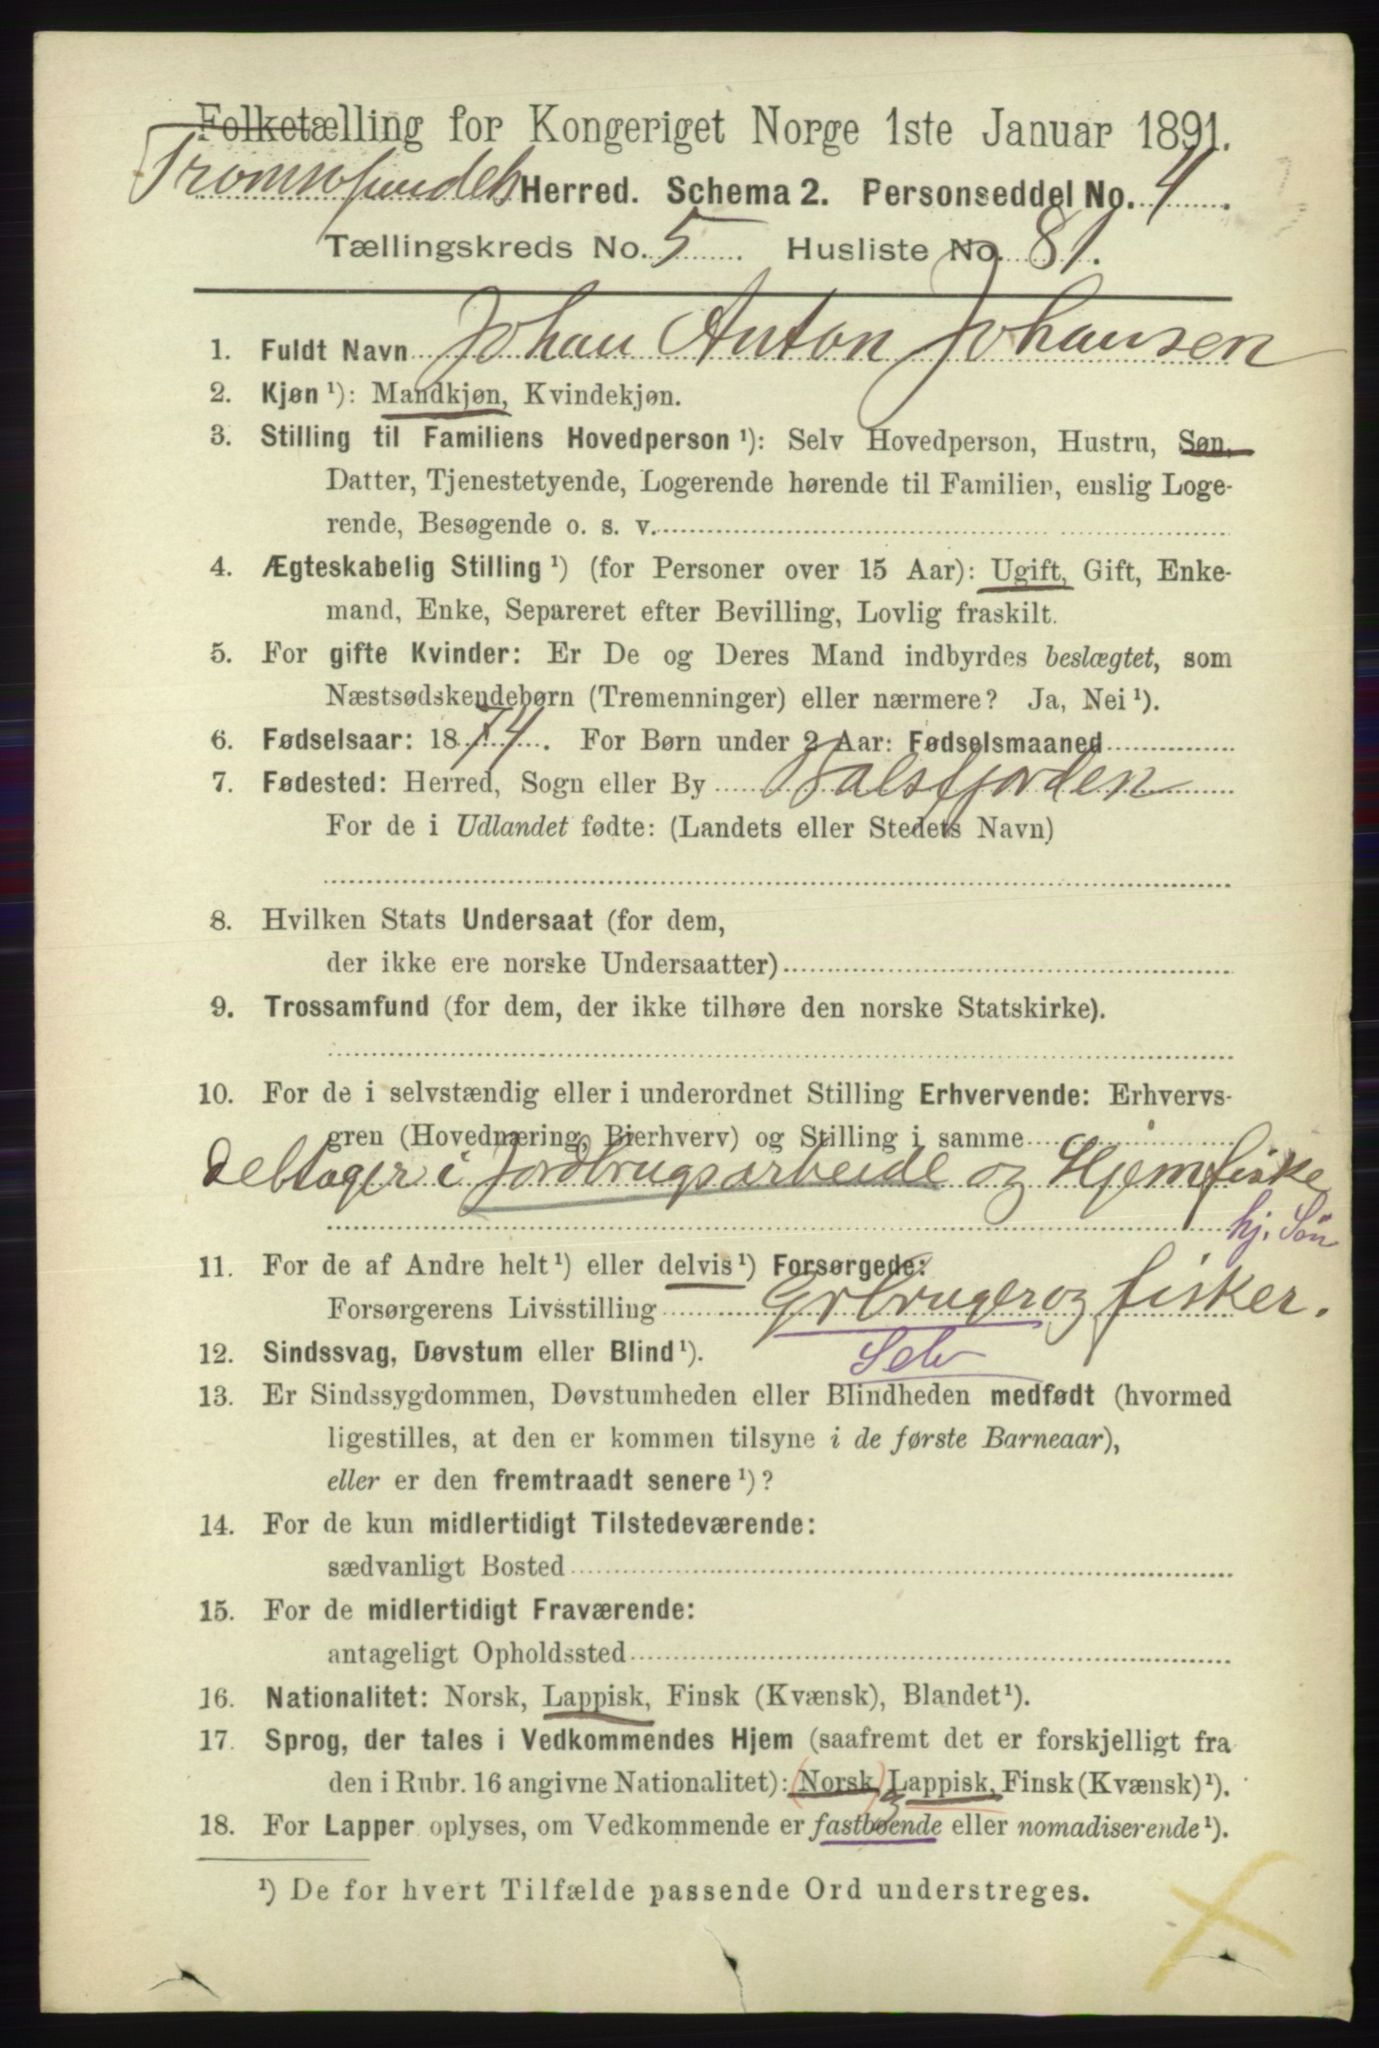 Folketælling for Kongeriget Norge 1ste Januar 1891.
Tromsøsundets Herred. Schema 2. Personseddel No. 4.
Tællingskreds No. 5 Husliste No. 81.
1. Fuldt Navn Johan Anton Johansen
2. Kjøn ¹): Mandkjøn, Kvindekjøn.
3. Stilling til Familiens Hovedperson ¹): Selv Hovedperson, Hustru, Søn,
Datter, Tjenestetyende, Logerende hørende til Familien, enslig Loge-
rende, Besøgende o. s. v.
4. Ægteskabelig Stilling ¹) (for Personer over 15 Aar): Ugift, Gift, Enke-
mand, Enke, Separeret efter Bevilling, Lovlig fraskilt.
5. For gifte Kvinder: Er De og Deres Mand indbyrdes beslægtet, som
Næstsødskendebørn (Tremenninger) eller nærmere? Ja, Nei ¹).
6. Fødselsaar: 1874. For Børn under 2 Aar: Fødselsmaaned
7. Fødested: Herred, Sogn eller By Balsfjorden
For de i Udlandet fødte: (Landets eller Stedets Navn)
8. Hvilken Stats Undersaat (for dem,
der ikke ere norske Undersaatter)
9. Trossamfund (for dem, der ikke tilhøre den norske Statskirke).
10. For de i selvstændig eller i underordnet Stilling Erhvervende: Erhvervs-
gren (Hovednæring, Bierhverv) og Stilling i samme
deltager i Jordbrugsarbeide og Hjemfiske
hj. Søn
11. For de af Andre helt ¹) eller delvis ¹) Forsørgede:
Forsørgerens Livsstilling Grbruger og fisker.
12. Sindssvag, Døvstum eller Blind ¹). Selv
13. Er Sindssygdommen, Døvstumheden eller Blindheden medfødt (hvormed
ligestilles, at den er kommen tilsyne i de første Barneaar),
eller er den fremtraadt senere ¹)?
14. For de kun midlertidigt Tilstedeværende:
sædvanligt Bosted
15. For de midlertidigt Fraværende:
antageligt Opholdssted
16. Nationalitet: Norsk, Lappisk, Finsk (Kvænsk), Blandet ¹).
17. Sprog, der tales i Vedkommendes Hjem (saafremt det er forskjelligt fra
den i Rubr. 16 angivne Nationalitet): (Norsk) Lappisk, Finsk (Kvænsk) ¹).
18. For Lapper oplyses, om Vedkommende er fastboende eller nomadiserende ¹).
¹) De for hvert Tilfælde passende Ord understreges.